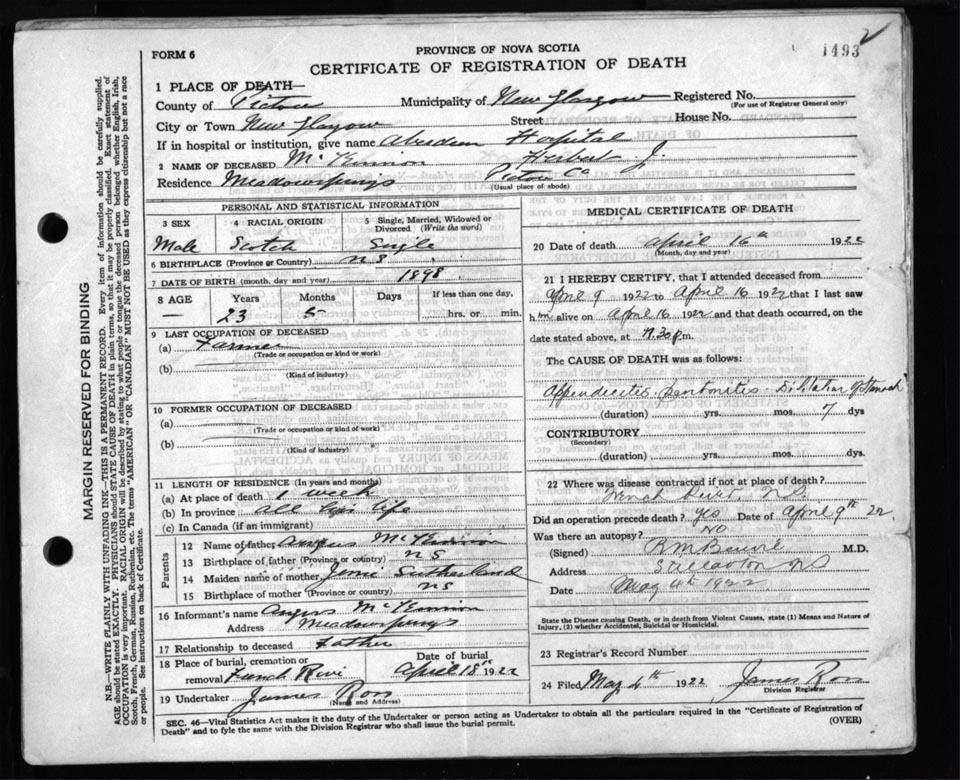 1493 2
FORM 6
PROVINCE OF NOVA SCOTIA
CERTIFICATE OF REGISTRATION OF DEATH
1 PLACE OF DEATH—
County of Pictou Municipality of New Glasgow Registered No.
(For use of Registrar General only)
City or Town New Glasgow Street House No.
If in hospital or institution, give name Aberdeen Hospital
2 NAME OF DECEASED McKinnon Herbert J.
Residence Meadowsprings Pictou Co
(Usual place of abode)
PERSONAL AND STATISTICAL INFORMATION
3 SEX 4 RACIAL ORIGIN 5 Single, Married, Widowed or Divorced (Write the word)
Male Scotch Single
6 BIRTHPLACE (Province or Country) NS
7 DATE OF BIRTH (month, day and year) 1898
8 AGE Years Months Days If less than one day,
— 23 5 hrs. or min.
9 LAST OCCUPATION OF DECEASED
(a) Farmer
(Trade or occupation or kind or work)
(b)
(Kind of industry)
10 FORMER OCCUPATION OF DECEASED
(a)
(Trade or occupation or kind of work)
(b)
(Kind of industry)
11 LENGTH OF RESIDENCE (In years and months)
(a) At place of death 1 week
(b) In province all his life
(c) In Canada (if an immigrant)
Parents
12 Name of father Angus McKinnon
13 Birthplace of father (Province or country) NS
14 Maiden name of mother Sutherland
15 Birthplace of mother (Province or country) NS
16 Informant's name Angus McKinnon
Address Meadowsprings
17 Relationship to deceased Father
18 Place of burial, cremation or removal French River Date of burial April 18th 1922
19 Undertaker James Ross
(Name and Address)
MEDICAL CERTIFICATE OF DEATH
20 Date of death April 16th 1922
(Month, day and year)
21 I HEREBY CERTIFY, that I attended deceased from
April 9 1922 to April 16 1922 that I last saw
him alive on April 16 1922 and that death occurred, on
date stated above, at 11.30 p.m.
The CAUSE OF DEATH was as follows:
Appendicitis peritonitis - Dilation of Stomach
(duration) yrs. mos. 7 dys
CONTRIBUTORY
(Secondary)
(duration) yrs. mos. dys.
22 Where was disease contracted if not at place of death?
French River, N.S.
Did an operation precede death? yes Date of April 9th 22
Was there an autopsy? NO
(Signed) M.D.
Address Stellarton NS
Date May 4th 1922
State the Disease causing Death, or in death from Violent Causes, state (1) Means and Nature of Injury, (2) whether Accidental, Suicidal or Homicidal.
23 Registrar's Record Number
24 Filed May 4th 1922 James Ross
Division Registrar
SEC. 46—Vital Statistics Act makes it the duty of the Undertaker or person acting as Undertaker to obtain all the particulars required in the "Certificate of Registration of
Death" and to fyle the same with the Division Registrar who shall issue the burial permit. (OVER)
MARGIN RESERVED FOR BINDING
N.B.—WRITE PLAINLY WITH UNFADING INK—THIS IS A PERMANENT RECORD. Every item of information should be carefully supplied.
AGE should be stated EXACTLY. PHYSICIANS should STATE CAUSE OF DEATH in plain terms, so that it may be properly classified. Exact statement of
OCCUPATION is very important. RACIAL ORIGIN will be described by stating to what people or tongue the deceased person belonged whether English, Irish,
Scotch, French, German, Russian, Ruthenian, etc. The terms "AMERICAN" OR "CANADIAN" MUST NOT BE USED as they express citizenship but not a race
or people. See instructions on back of Certificate.